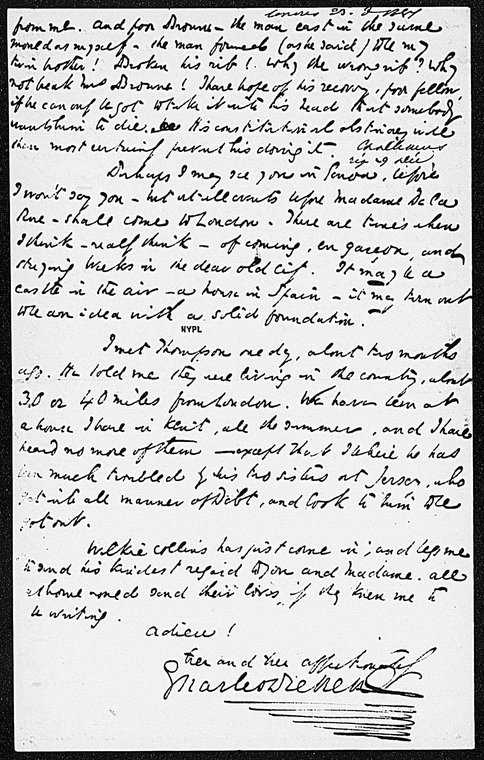 from me. And poor Brown – the man cast in the same
mould as myself – the man formed (as he said) to be my
twin brother! Broken his rib! Why the wrong rib? Why
not break Mrs Brown! I have hope of his recovery, poor fellow,
if he can only be got to take it into his head that somebody
wants him to die. His constitutional obstinacy will
then most certainly prevent his doing it.
Perhaps I may see you in Genoa, before
I won't say you – but at all events before Madame De la
Rue – shall come to London. There are times when
I think – half think – of coming, en garçon, and
staying weeks in the dear old city. It may be a
castle in the air – a house in Spain – it may turn out
to be an idea with a solid foundation.
NYPL
I met Thompson one day, about two months
ago. He told me they were living in the country, about
30 or 40 miles from London. We have been at
a house I have in Kent, all the summer, and I have
heard no more of them – except that I believe he has
been much troubled by his two sisters at Jersey, who
get into all manner of Debt, and look to him to be
got out.
Wilkie Collins has just come in; and begs me
to send his kindest regard to you and Madame. All
at home would send their loves, if they knew me to
be writing.
Adieu!
Ever and Ever affectionately
Charles Dickens